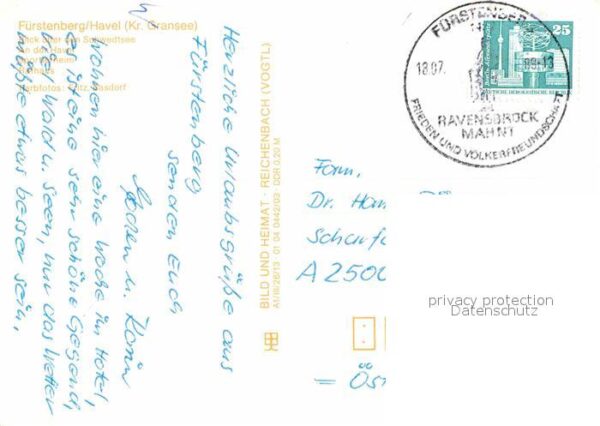 Fürstenberg/Havel (Kr. Gransee)
Blick über den Schwedtsee
An der Havel
Herzliche Urlaubsgrüße aus
Fürstenberg
senden Euch
u.
Wohnen hier eine Woche im Hotel,
es ist eine sehr schöne Gegend,
viel Wald u. Seen, nur das Wetter
müßte etwas besser sein.
BILD UND HEIMAT · REICHENBACH (VOGTL)
A1/III/26/13 · 01 04 0442/03 · DDR 0,20 M
FÜRSTENBERG
18.07.
RAVENSBRÜCK
MAHNT
FRIEDEN UND VÖLKERFREUNDSCHAFT
25
Fam.
Dr.
A 2500
= Öst
privacy protection
Datenschutz